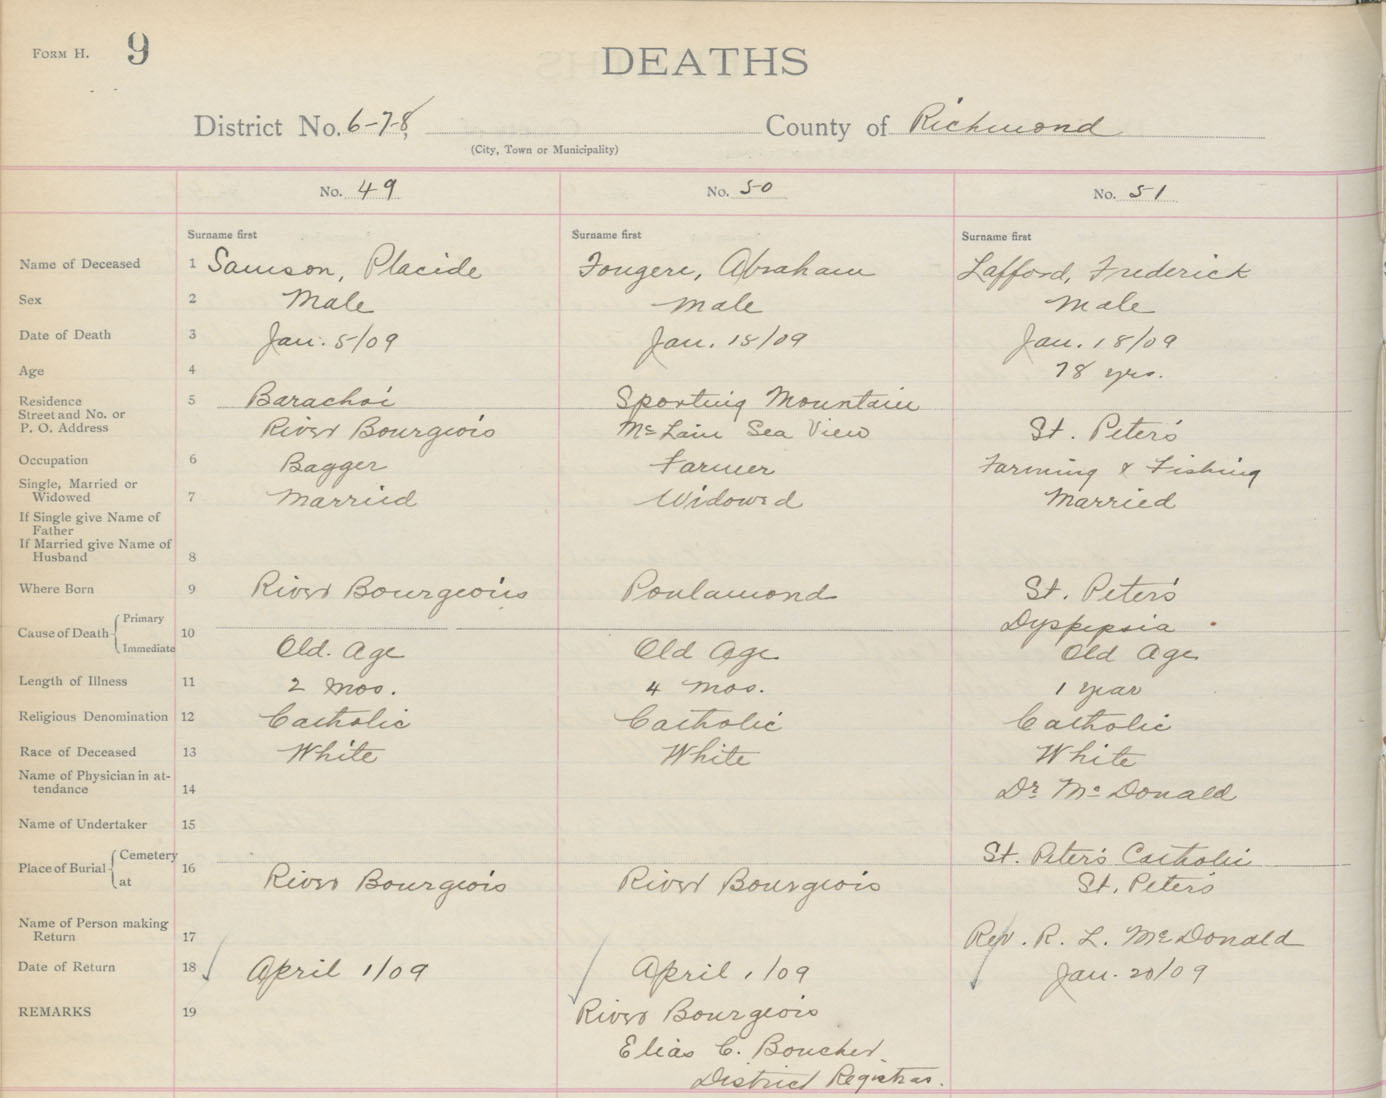 FORM H. 9
DEATHS
District No. 6-7-8 County of Richmond
(City, Town or Municipality)
No. 49 No. 50 No. 51
Surname first Surname first Surname first
Name of Deceased 1 Samson, Placide Fougere, Abraham Lafford, Frederick
Sex 2 Male Male Male
Date of Death 3 Jan. 5/09 Jan. 18/09 Jan. 18/09
Age 4 78 yrs.
Residence 5 Barachoi Sporting Mountain
Street and No. or
P. O. Address River Bourgeois McLain Sea View St. Peter's
Occupation 6 Bagger Farmer Farming & Fishing
Single, Married or
Widowed 7 Married Widowed Married
If Single give Name of
Father
If Married give Name of
Husband 8
Where Born 9 River Bourgeois Poulamond St. Peter's
Cause of Death 10 Primary Dyspepsia
Immediate Old. Age Old Age Old Age
Length of Illness 11 2 mos. 4 mos. 1 year
Religious Denomination 12 Catholic Catholic Catholic
Race of Deceased 13 White White White
Name of Physician in at-
tendance 14 Dr. McDonald
Name of Undertaker 15
Place of Burial 16 Cemetery St. Peter's Catholic
at River Bourgeois River Bourgeois St. Peter's
Name of Person making
Return 17 Rev. R. L. McDonald
Date of Return 18 April 1/09 April 1/09 Jan. 20/09
REMARKS 19 River Bourgeois
Elias C. Boucher.
District Registrar.